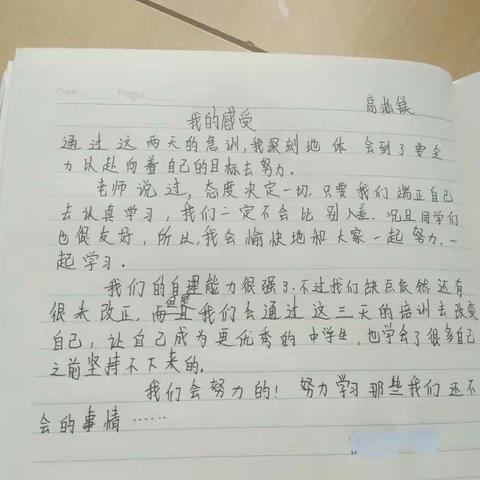 Date. Page.
高
我的感受
通过这两天的急训,我深刻地体会到了要全
力以赴向着自己的目标去努力.
老师说过,态度决定一切.只要我们端正自己
去认真学习,我们一定不会比别人差.况且同学们
也很友好,所以,我会愉快地和大家一起努力,一
起学习.
我们的自理能力很强了.不过我们缺点依然还有
很未改正.而且但是我们会通过这三天的培训去改变
自己,让自己成为更优秀的中学生,也学会了很多自己
之前坚持不下来的.
我们会努力的!努力学习那些我们还不
会的事情……